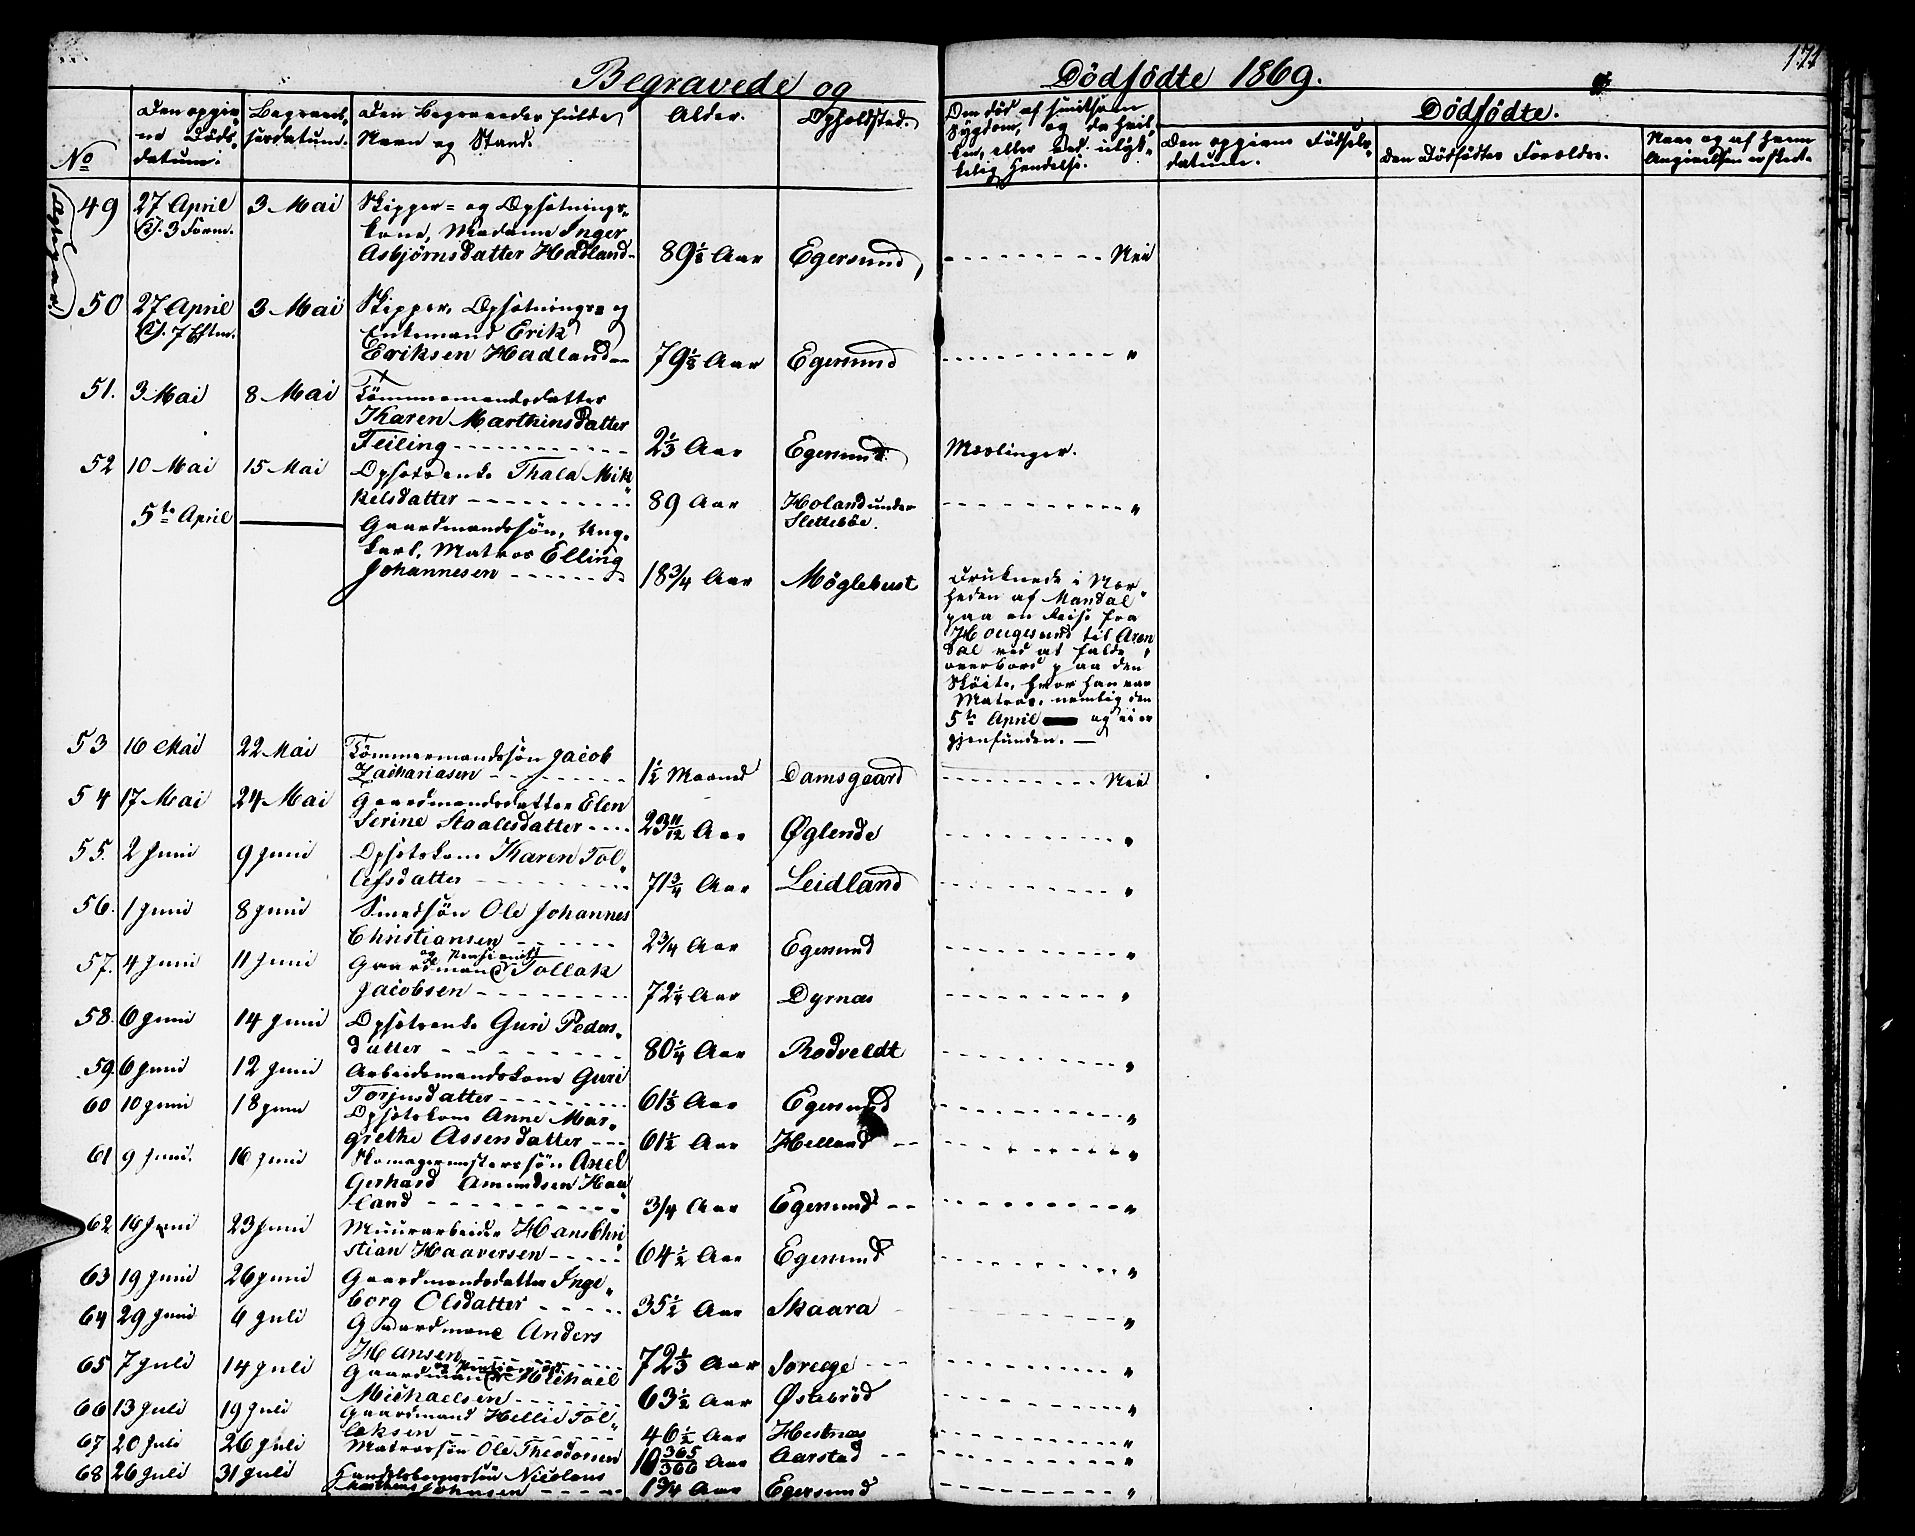 Begravede og Dödfödte 1869.
174
No
Den opgivne Döds-datum.
Begravelsesdatum.
Den Begravedes fulde Navn og Stand.
Alder.
Opholdsted.
Om död af smitsom Sygdom, og da hvilken, eller ved ulykkelig Hendelse.
Dödfödte.
Den opgivne Födsels-datum.
Den Dödfödtes Forældre.
Naar og af hvem Angivelsen er skeet.
49 27 April 3 Mai Skipper- og Opsætnings-
Kl. 3 Form. kone, Madame Inger
Asbjørnsdatter Hadland- 89½ Aar Egersund, Nei
50 27 April 3 Mai Skipper, Opsætnings- og
Kl. 7 Eftm. Enkemand Erik
Eriksen Hadland- 79½ Aar Egersund "
51. 3 Mai 8 Mai Tömmermandsdatter
Karen Marthinsdatter
Feiling 2⅓ Aar Egersund Meslinger.
52 10 Mai 15 Mai Opsætsenke Thala Mik-
kelsdatter 89 Aar Holand under "
Sletteböe.
5te April Gaardmandssön, Ung-
karl, Matros Elling
Johannesen 18 3/4 Aar Möglebust Druknede i Nær-
heden af Mandal
paa en Reise fra
Hougesund til Aren-
dal ved at falde
overbord paa den
Sköite, hvor han var
Matros, nemlig den
5te April og ei er
gjenfunden. —
53 16 Mai 22 Mai Tömmermandssön Jacob
Zachariasen 1½ Maaned Damsgaard Nei
54 17 Mai 24 Mai Gaardmandsdatter Elen
Serine Staalesdatter 23 11/12 Aar Øglende "
55. 2 Juni 9 Juni Opsætskone Karen Tol-
lefsdatter 71 3/4 Aar Leidland "
56. 1 Juni 8 Juni Smedsön Ole Johannes
Christiansen 2 3/4 Aar Egersund "
57. 4 Juni 11 Juni Gaardmand og Pensionist Tollak
Jacobsen 72 1/4 Aar Dyrnæs "
58. 6 Juni 14 Juni Opsætsenke Guri Peders-
datter 80 1/4 Aar Rodveldt "
59 6 Juni 12 Juni Arbeidsmandskone Guri
Torjusdatter 61⅓ Aar Egersund "
60 10 Juni 18 Juni Opsætskone Anne Mar-
grethe Assersdatter 61½ Aar Helland "
61 9 Juni. 16 Juni Skomagermesterssön Axel
Gerhard Amundsen Haa-
land 3/4 Aar Egersund "
62 16 Juni 23 Juni Muurarbeider Hans Chri-
stian Haaversen 64½ Aar Egersund "
63 19 Juni 26 Juni Gaardmandsdatter Inge-
borg Olsdatter 35½ Aar Skaara "
64 29 Juni 6 Juli Gaardmand Anders
Hansen 72⅓ Aar "
65 7 Juli 14 Juli Gaardmand og Pensionist Michael
Michaelsen 63½ Aar Østebröd "
66 13 Juli 19 Juli Gaardmand Hellie Tol-
laksen 46½ Aar Hestnæs "
67 20 Juli 26 Juli Matrossön Ole Theodorsen 10 Aar Aarstad "
68 26 Juli 31 Juli Nicolaus
Johnsen 1 3/4 Aar Egersund "